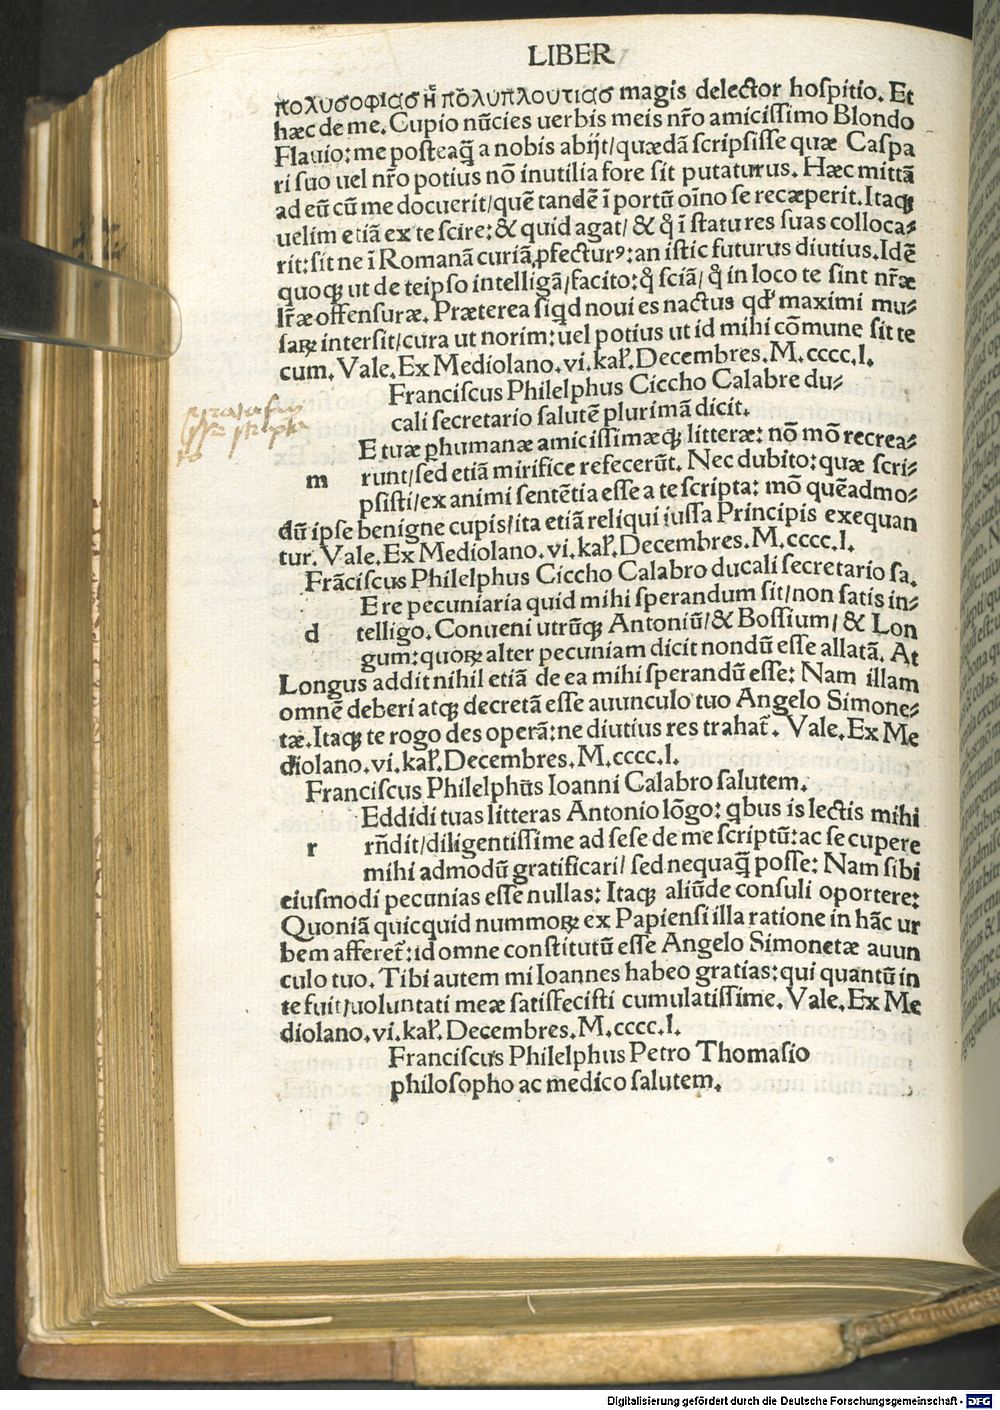 LIBER
πολυσοφιασ ἢ πολυπλουτιασ magis delector hoſpitio. Et
hæc de me. Cupio nūcies uerbis meis nr̄o amiciſſimo Blondo
Flauio: me poſteaq̄ a nobis abijt/quædā ſcripſiſſe quæ Caſpa
ri ſuo uel nr̄o potius nō inutilia fore ſit putaturus. Hæc mittā
ad eū cū me docuerit/quē tandē ī portū oīno ſe recæperit. Itaqꝫ
uelim etiā ex te ſcire: & quid agat/ & q̄ ī ſtatu res ſuas colloca⸗
rit: ſit ne ī Romanā curiā ꝓfecturꝰ: an iſtic futurus diutius. Idē
quoqꝫ ut de teipſo intelligā/facito: q̊ ſciā/ q̊ in loco te ſint nr̄æ
lr̄æ offenſuræ. Præterea ſiqd noui es nactus qđ maximi mu⸗
ſaꝝ interſit/cura ut norim: uel potius ut id mihi cōmune ſit te
cum. Vale. Ex Mediolano. vi. kal̕. Decembres. M. cccc. I.
Franciſcus Philelphus Ciccho Calabre du⸗
cali ſecretario ſalutē plurimā dicit.
E tuæ ꝑhumanæ amiciſſimæqꝫ litteræ: nō mō recrea⸗
m runt/ſed etiā mirifice refecerūt. Nec dubito: quæ ſcri⸗
pſiſti/ex animi ſentētia eſſe a te ſcripta: mō quēadmo⸗
dū ipſe benigne cupis/ita etiā reliqui iuſſa Principis exequan
tur. Vale. Ex Mediolano. vi. kal̕. Decembres. M. cccc. I.
Frāciſcus Philelphus Ciccho Calabro ducali ſecretario ſa.
E re pecuniaria quid mihi ſperandum ſit/non ſatis in⸗
d telligo. Conueni utrūqꝫ Antoniū/& Boſſium/ & Lon
gum: quoꝝ alter pecuniam dicit nondū eſſe allatā. At
Longus addit nihil etiā de ea mihi ſperandū eſſe: Nam illam
omnē deberi atqꝫ decretā eſſe auunculo tuo Angelo Simone⸗
tæ. Itaqꝫ te rogo des operā: ne diutius res trahat̄. Vale. Ex Me
diolano. vi. kal̕. Decembres. M. cccc. I.
Franciſcus Philelphus Ioanni Calabro ſalutem.
Eddidi tuas litteras Antonio lōgo: qbus is lectis mihi
r rn̄dit/diligentiſſime ad ſeſe de me ſcriptū: ac ſe cupere
mihi admodū gratificari/ ſed nequaq̄ poſſe: Nam ſibi
eiuſmodi pecunias eſſe nullas: Itaqꝫ aliūde conſuli oportere:
Quoniā quicquid nummoꝝ ex Papienſi illa ratione in hāc ur
bem afferet̄: id omne conſtitutū eſſe Angelo Simonetæ auun
culo tuo. Tibi autem mi Ioannes habeo gratias: qui quantū in
te fuit/uoluntati meæ ſatiſfeciſti cumulatiſſime. Vale. Ex Me
diolano. vi. kal̕. Decembres. M. cccc. I.
Franciſcus Philelphus Petro Thomaſio
philoſopho ac medico ſalutem.
Digitalisierung gefördert durch die Deutsche Forschungsgemeinschaft - DFG